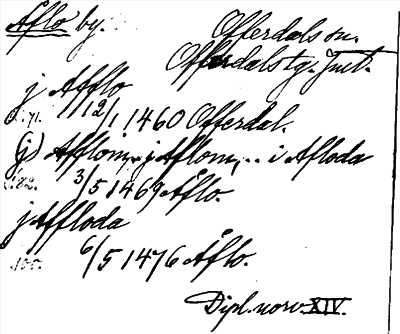 Aflo by. Offerdals sn.
Offerdals tg. Jmtl.
j Afflo
12/1 1460 Offerdal.
(j) Afflom, .. j Aflom, .. i Afloda
3/5 1469 Åflo.
j Affloda
6/5 1476 Åflo.
Dipl. norv. XIV.